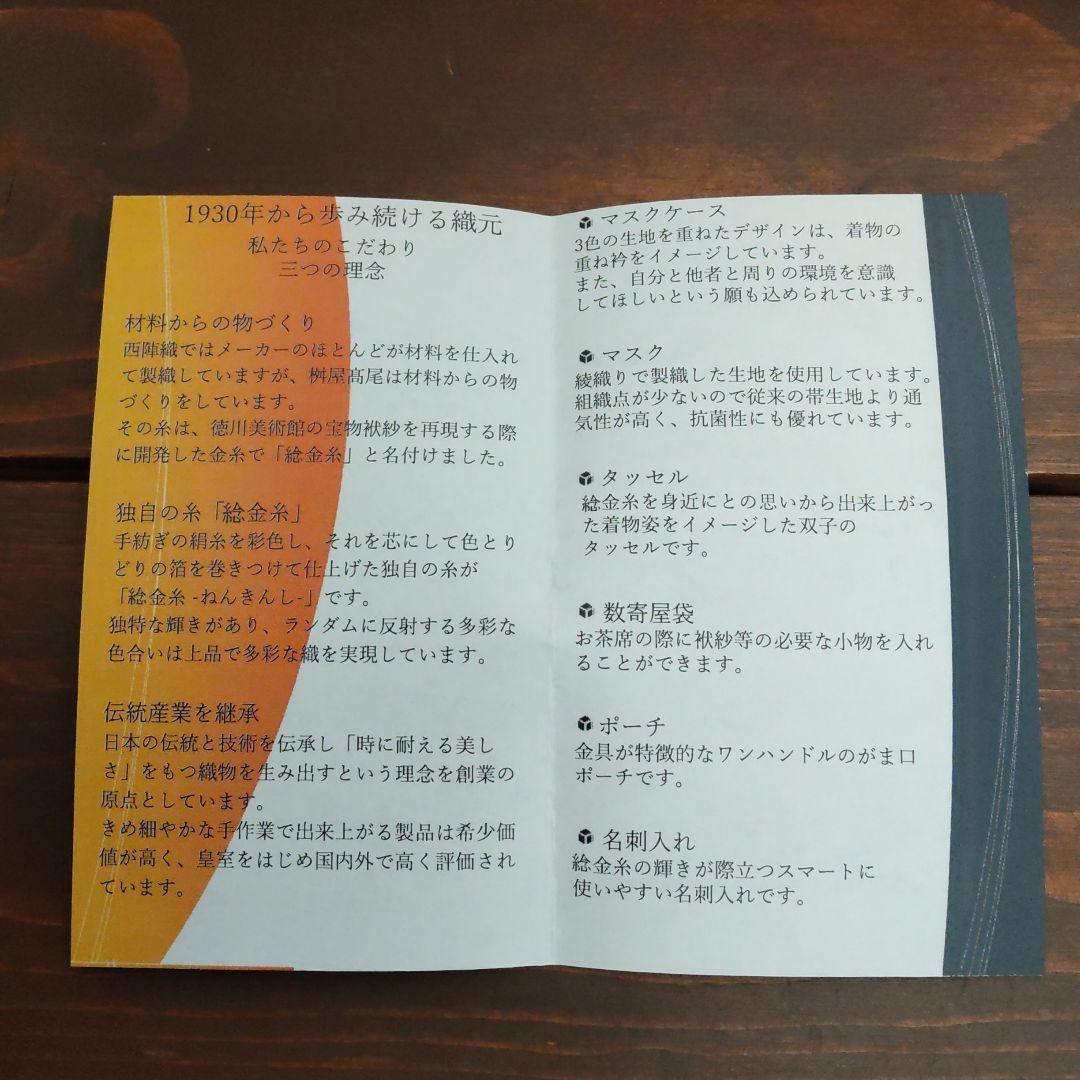 1930年から歩み続ける織元
私たちのこだわり
三つの理念
材料からの物づくり
西陣織ではメーカーのほとんどが材料を仕入れ
て製織していますが、桝屋髙尾は材料からの物
づくりをしています。
その糸は、徳川美術館の宝物袱紗を再現する際
に開発した金糸で「総金糸」と名付けました。
独自の糸「総金糸」
手紡ぎの絹糸を彩色し、それを芯にして色とり
どりの箔を巻きつけて仕上げた独自の糸が
「総金糸 -ねんきんし-」です。
独特な輝きがあり、ランダムに反射する多彩な
色合いは上品で多彩な織を実現しています。
伝統産業を継承
日本の伝統と技術を伝承し「時に耐える美し
さ」をもつ織物を生み出すという理念を創業の
原点としています。
きめ細やかな手作業で出来上がる製品は希少価
値が高く、皇室をはじめ国内外で高く評価され
ています。
マスクケース
3色の生地を重ねたデザインは、着物の
重ね衿をイメージしています。
また、自分と他者と周りの環境を意識
してほしいという願も込められています。
マスク
綾織りで製織した生地を使用しています。
組織点が少ないので従来の帯生地より通
気性が高く、抗菌性にも優れています。
タッセル
総金糸を身近にとの思いから出来上がっ
た着物姿をイメージした双子の
タッセルです。
数寄屋袋
お茶席の際に袱紗等の必要な小物を入れ
ることができます。
ポーチ
金具が特徴的なワンハンドルのがま口
ポーチです。
名刺入れ
総金糸の輝きが際立つスマートに
使いやすい名刺入れです。